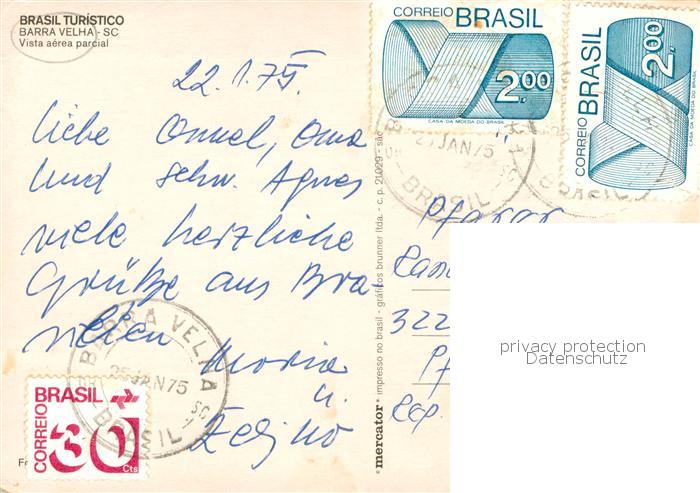 BRASIL TURÍSTICO
BARRA VELHA - SC
Vista aérea parcial
22.1.75.
liebe Onkel, Oma
und schw. Agnes
viele herzliche
Grüße aus Bra-
silien Maria
u.
CORREIO BRASIL
2,00
CASA DA MOEDA DO BRASIL
CORREIO BRASIL
2,00
CASA DA MOEDA DO BRASIL
JAN 75
BRASIL
BARRA VELHA
25 JAN 75
SC
BRASIL
CORREIO
BRASIL
30 Cts
mercator · impresso no brasil - gráficos brunner ltda. - c. p. 21029 - são
Pfarrer
322
privacy protection
Datenschutz